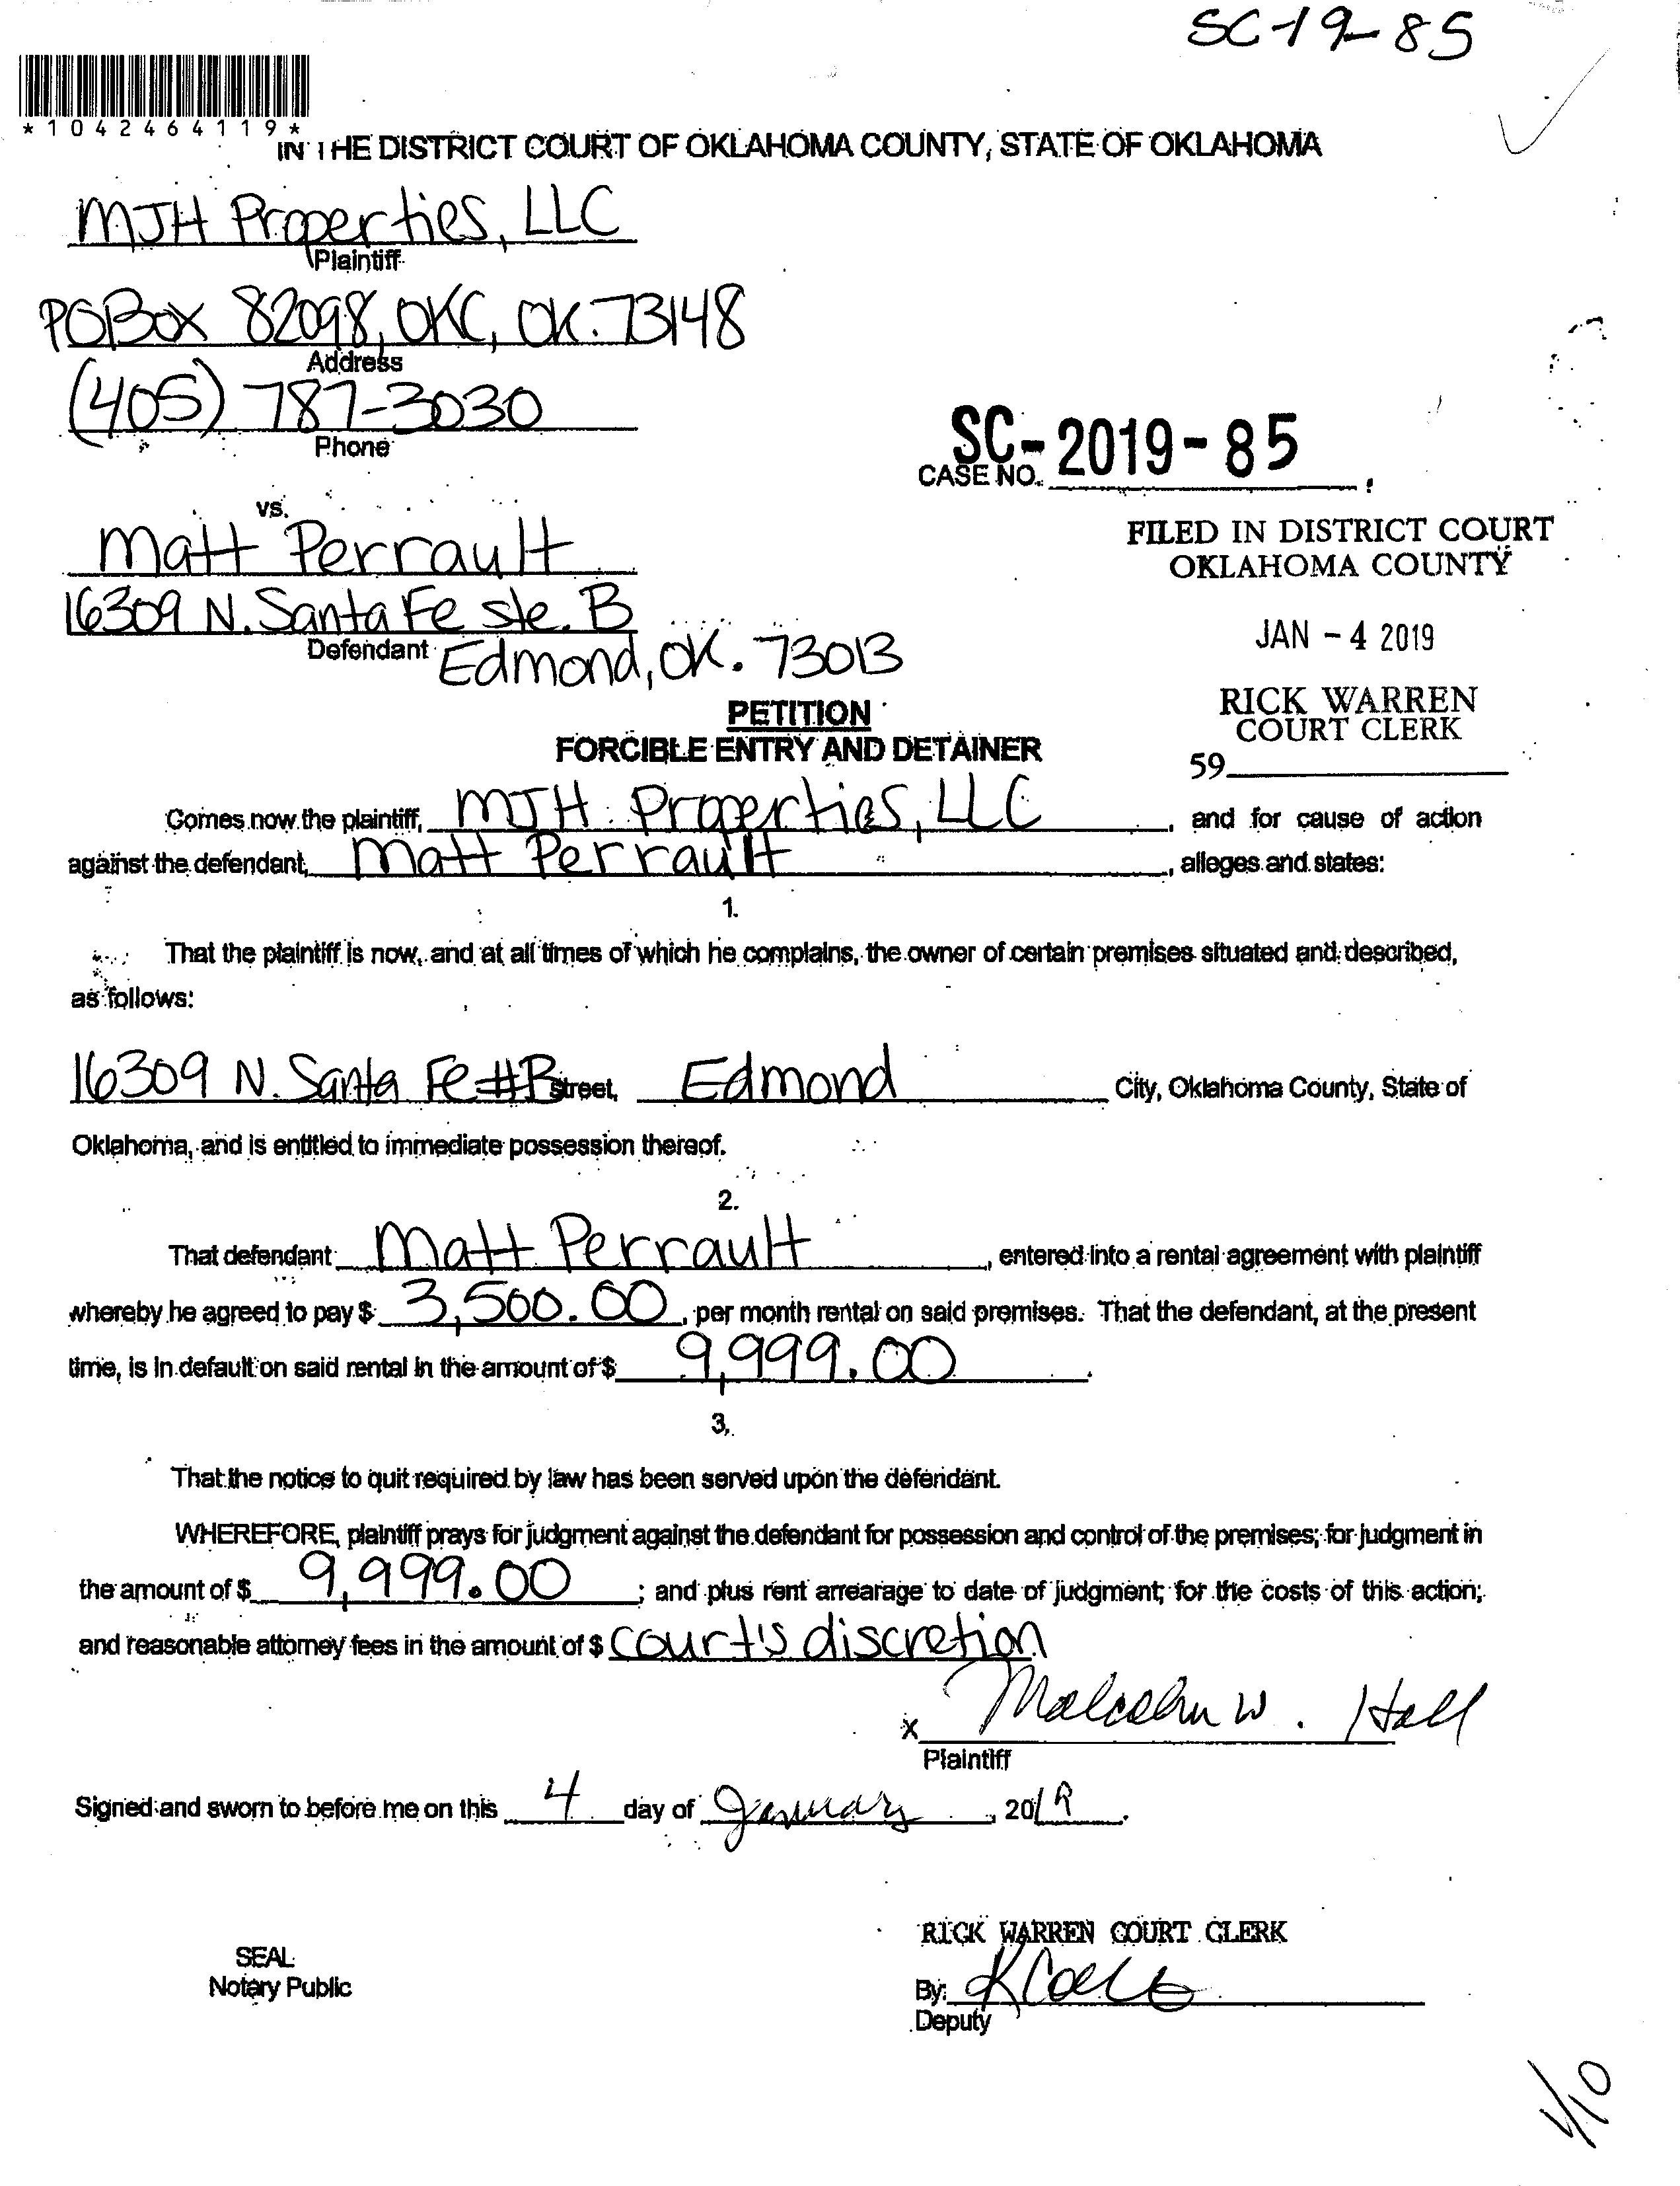 SC-19-85
*1042464119*
IN THE DISTRICT COURT OF OKLAHOMA COUNTY, STATE OF OKLAHOMA
MJH Properties, LLC
Plaintiff
PO Box 82098, OKC, OK. 73148
Address
(405) 787-3030
Phone
SC-2019-85
CASE NO.
vs.
Matt Perrault
16309 N. Santa Fe ste. B
Defendant Edmond, OK. 73013
FILED IN DISTRICT COURT
OKLAHOMA COUNTY
JAN - 4 2019
RICK WARREN
COURT CLERK
59
PETITION
FORCIBLE ENTRY AND DETAINER
Comes now the plaintiff, MJH Properties, LLC, and for cause of action
against the defendant, Matt Perrault, alleges and states:
1.
That the plaintiff is now, and at all times of which he complains, the owner of certain premises situated and described,
as follows:
16309 N. Santa Fe #B street, Edmond City, Oklahoma County, State of
Oklahoma, and is entitled to immediate possession thereof.
2.
That defendant Matt Perrault, entered into a rental agreement with plaintiff
whereby he agreed to pay $ 3,500.00, per month rental on said premises. That the defendant, at the present
time, is in default on said rental in the amount of $ 9,999.00.
3.
That the notice to quit required by law has been served upon the defendant.
WHEREFORE, plaintiff prays for judgment against the defendant for possession and control of the premises; for judgment in
the amount of $ 9,999.00; and plus rent arrearage to date of judgment; for the costs of this action;
and reasonable attorney fees in the amount of $ court's discretion
x Malcolm W. Hall
Plaintiff
Signed and sworn to before me on this 4 day of January, 2019.
RICK WARREN COURT CLERK
SEAL
Notary Public
By:
Deputy
1/10